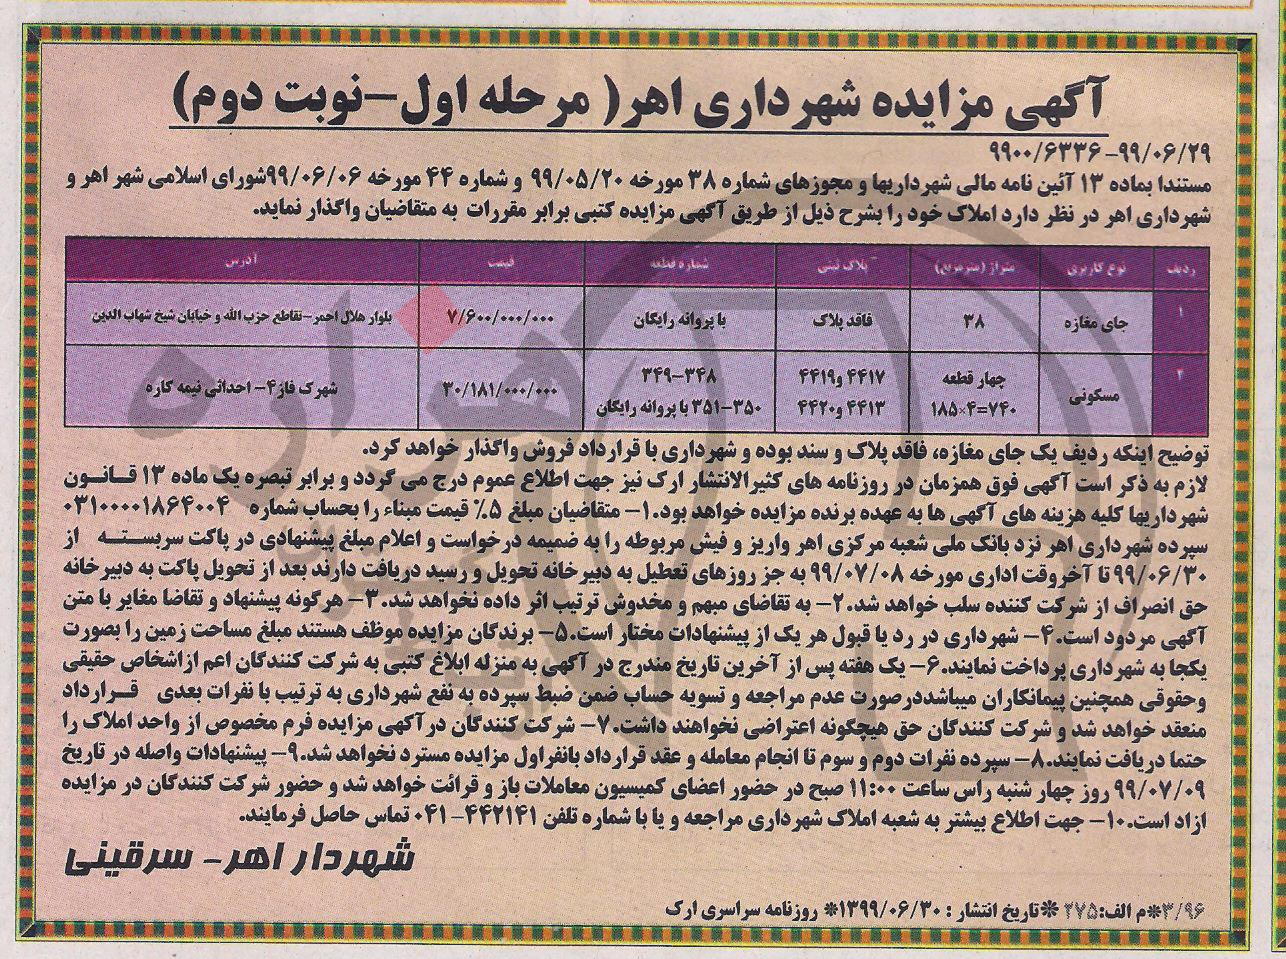 آگهی مزایده شهرداری اهر( مرحله اول–نوبت دوم)
۹۹۰۰/۶۳۳۶-۹۹/۰۶/۲۹
مستندا بماده ۱۳ آئین نامه مالی شهرداریها و مجوزهای شماره ۳۸ مورخه ۹۹/۰۵/۲۰ و شماره ۴۴ مورخه ۹۹/۰۶/۰۶شورای اسلامی شهر اهر و
شهرداری اهر در نظر دارد املاک خود را بشرح ذیل از طریق آگهی مزایده کتبی برابر مقررات به متقاضیان واگذار نماید.
ردیف نوع کاربری متراژ (مترمربع) پلاک ثبتی شماره قطعه قیمت آدرس
۱ جای مغازه ۳۸ فاقد پلاک با پروانه رایگان ۷/۶۰۰/۰۰۰/۰۰۰ بلوار هلال احمر-تقاطع حزب الله و خیابان شیخ شهاب الدین
۲ مسکونی چهار قطعه ۴۴۱۷ و۴۴۱۹ ۳۴۸-۳۴۹ ۳۰/۱۸۱/۰۰۰/۰۰۰ شهرک فاز۴- احداثی نیمه کاره
۷۴۰=۴×۱۸۵ ۴۴۱۳ و۴۴۲۰ ۳۵۰-۳۵۱ با پروانه رایگان
توضیح اینکه ردیف یک جای مغازه، فاقد پلاک و سند بوده و شهرداری با قرارداد فروش واگذار خواهد کرد.
لازم به ذکر است آگهی فوق همزمان در روزنامه های کثیرالانتشار ارک نیز جهت اطلاع عموم درج می گردد و برابر تبصره یک ماده ۱۳ قانون
شهرداریها کلیه هزینه های آگهی ها به عهده برنده مزایده خواهد بود.۱- متقاضیان مبلغ ۵٪ قیمت مبناء را بحساب شماره ۰۳۱۰۰۰۰۱۸۶۴۰۰۴
سپرده شهرداری اهر نزد بانک ملی شعبه مرکزی اهر واریز و فیش مربوطه را به ضمیمه درخواست و اعلام مبلغ پیشنهادی در پاکت سربسته از
۹۹/۰۶/۳۰ تا آخروقت اداری مورخه ۹۹/۰۷/۰۸ به جز روزهای تعطیل به دبیرخانه تحویل و رسید دریافت دارند بعد از تحویل پاکت به دبیرخانه
حق انصراف از شرکت کننده سلب خواهد شد.۲- به تقاضای مبهم و مخدوش ترتیب اثر داده نخواهد شد.۳- هرگونه پیشنهاد و تقاضا مغایر با متن
آگهی مردود است.۴- شهرداری در رد یا قبول هر یک از پیشنهادات مختار است.۵- برندگان مزایده موظف هستند مبلغ مساحت زمین را بصورت
یکجا به شهرداری پرداخت نمایند.۶- یک هفته پس از آخرین تاریخ مندرج در آگهی به منزله ابلاغ کتبی به شرکت کنندگان اعم ازاشخاص حقیقی
وحقوقی همچنین پیمانکاران میباشددرصورت عدم مراجعه و تسویه حساب ضمن ضبط سپرده به نفع شهرداری به ترتیب با نفرات بعدی قرارداد
منعقد خواهد شد و شرکت کنندگان حق هیچگونه اعتراضی نخواهند داشت.۷- شرکت کنندگان درآگهی مزایده فرم مخصوص از واحد املاک را
حتما دریافت نمایند.۸- سپرده نفرات دوم و سوم تا انجام معامله و عقد قرارداد بانفراول مزایده مسترد نخواهد شد.۹- پیشنهادات واصله در تاریخ
۹۹/۰۷/۰۹ روز چهار شنبه راس ساعت ۱۱:۰۰ صبح در حضور اعضای کمیسیون معاملات باز و قرائت خواهد شد و حضور شرکت کنندگان در مزایده
ازاد است.۱۰- جهت اطلاع بیشتر به شعبه املاک شهرداری مراجعه و یا با شماره تلفن ۴۴۲۱۴۱-۰۴۱ تماس حاصل فرمایند.
شهردار اهر- سرقینی
۳/۹۶*م الف:۲۷۵ *تاریخ انتشار : ۱۳۹۹/۰۶/۳۰* روزنامه سراسری ارک